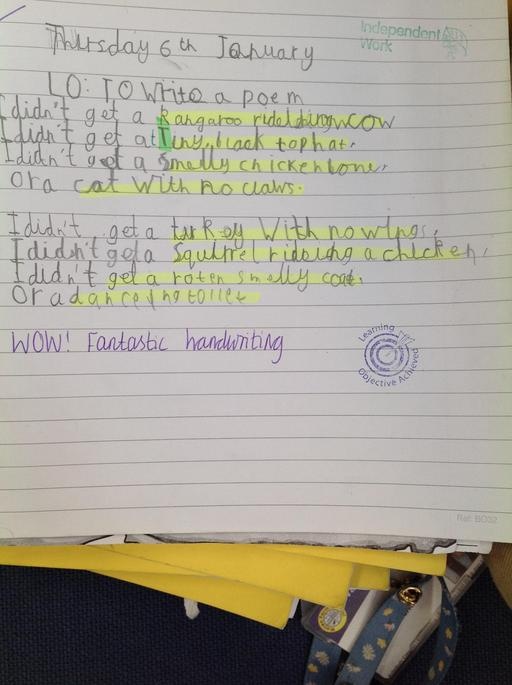 Independent
Work
Thursday 6th January
LO: To Write a poem
I didn't get a Kangaroo riding cow
I didn't get a Tiny, black tophat,
I didn't get a smelly chickenbone,
Or a cat with no claws.
I didn't get a turkey With no wings,
I didn't get a Squirrel riding a chicken,
I didn't get a roten smelly coat,
Or a danceing toilet
WOW! Fantastic handwriting
Learning
Objective Achieved
Ref: BO32